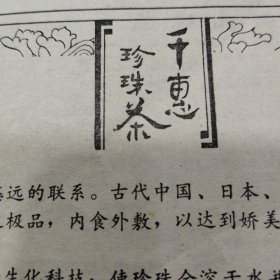 千惠
珍珠茶
远的联系。古代中国、日本、
极品，内食外敷，以达到娇美
生化科技，使珍珠全溶于水